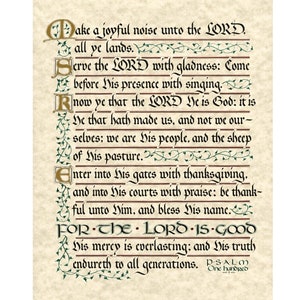 Make a joyful noise unto the LORD
all ye lands.
Serve the LORD with gladness: Come
before His presence with singing.
Know ye that the LORD He is God: it is
He that hath made us, and not we our-
selves; we are His people, and the sheep
of His pasture.
Enter into His gates with thanksgiving,
and into His courts with praise: be thank-
ful unto Him, and bless His name.
FOR · THE · LORD · IS · GOOD
His mercy is everlasting; and His truth
endureth to all generations.
PSALM
One hundred